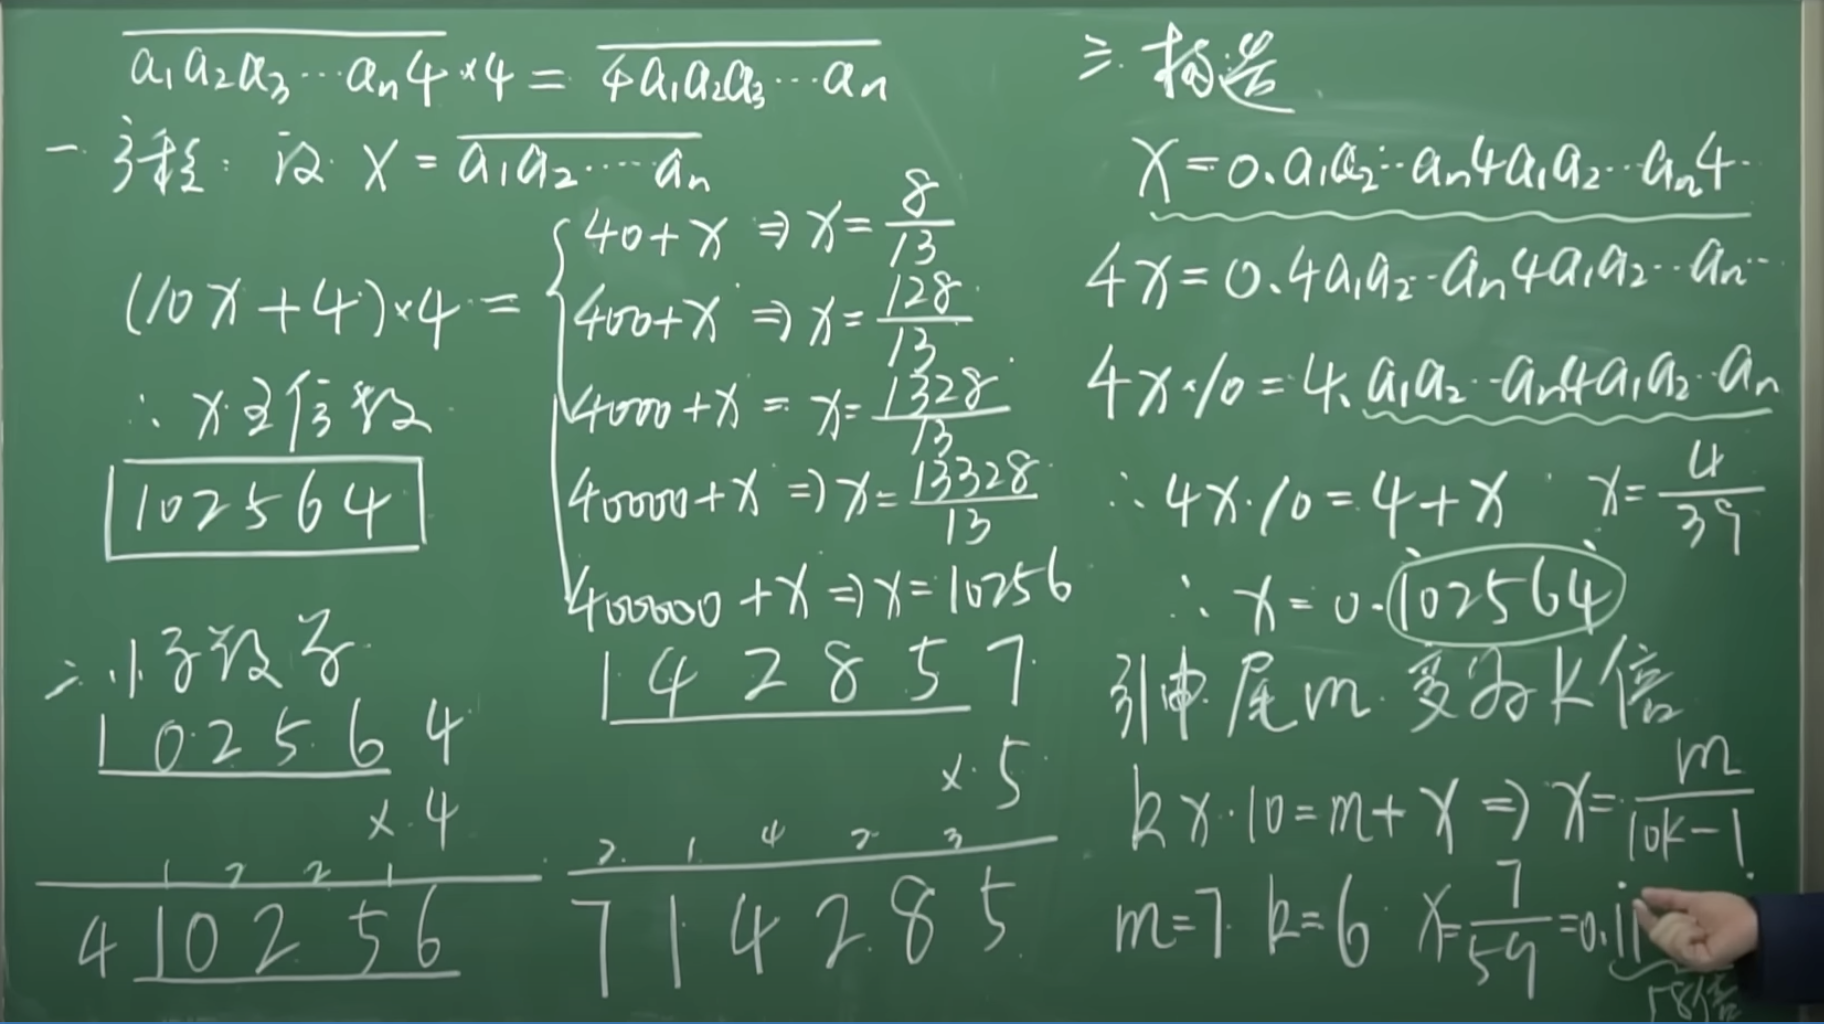 a₁a₂a₃…aₙ4×4=4a₁a₂a₃…aₙ
一. 方程: 设 x=a₁a₂……aₙ
(10x+4)×4=
40+x⇒x=8/13
400+x⇒x=128/13
4000+x=x=1328/13
40000+x⇒x=13328/13
400000+x⇒x=10256
∴x是倍数
102564
二. 小子设子
102564
×4
1 2 2 1
410256
142857
×5
2 1 4 2 3
714285
三. 构造
x=0.a₁a₂…aₙ4a₁a₂…aₙ4…
4x=0.4a₁a₂…aₙ4a₁a₂…aₙ…
4x·10=4.a₁a₂…aₙ4a₁a₂…aₙ
∴4x·10=4+x x=4/39
∴x=0.1̇02564̇
引申 尾m变为k倍
kx·10=m+x⇒x=m/(10k-1)
m=7 k=6 x=7/59=0.1̇1
58位